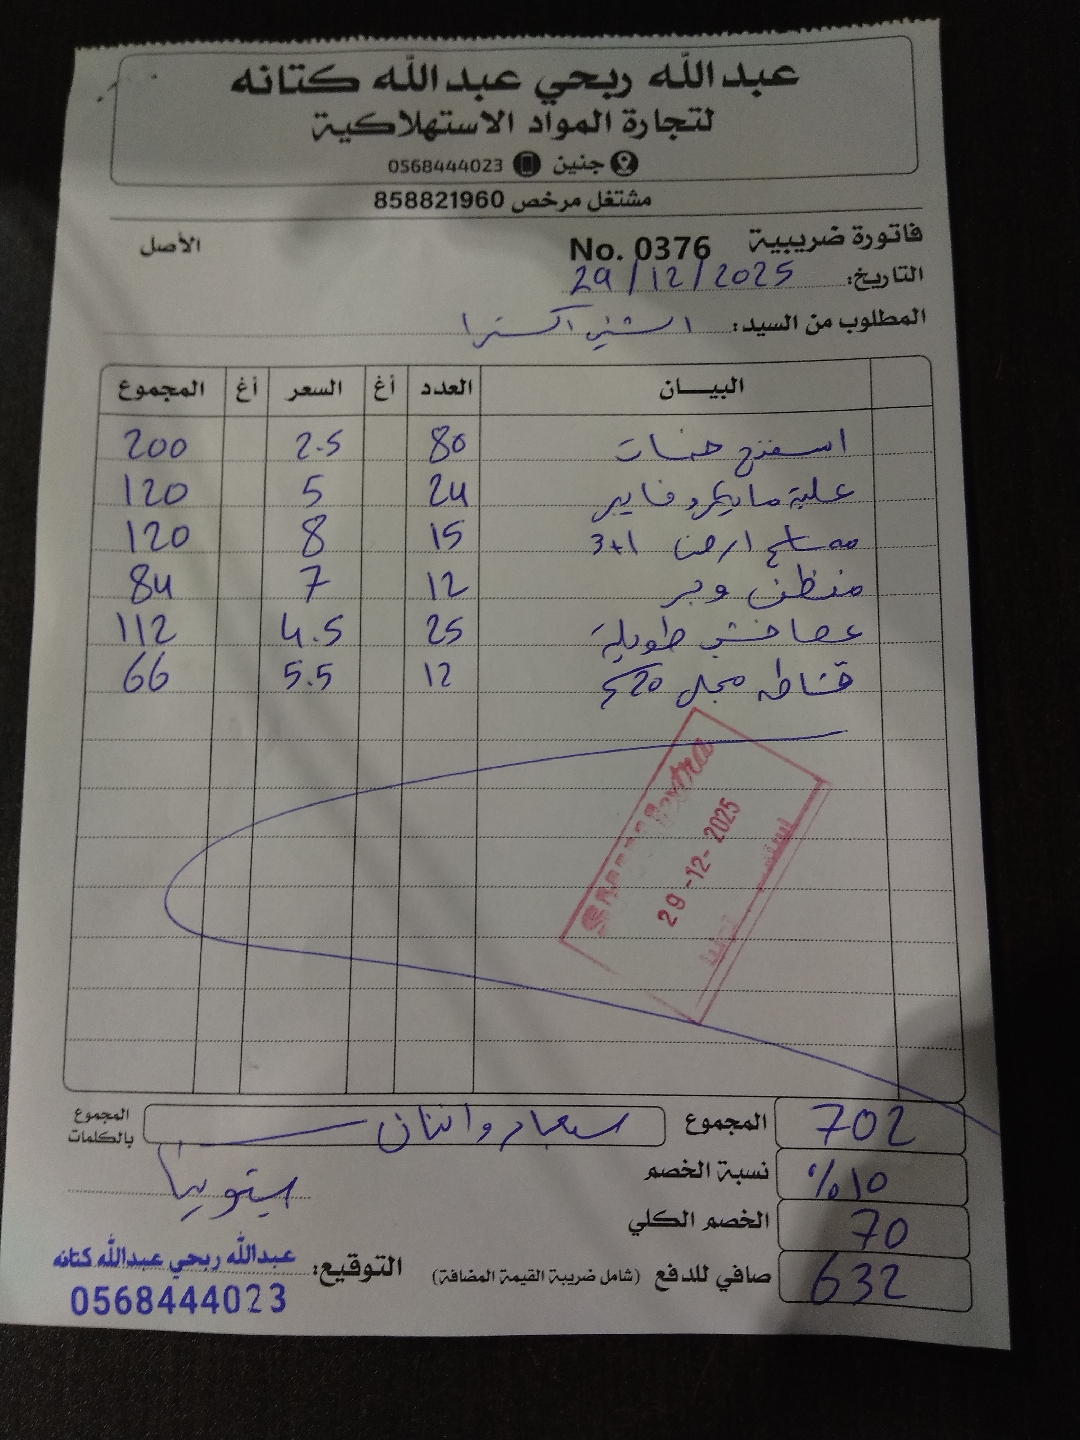 عبدالله ربحي عبدالله كتانه
لتجارة المواد الاستهلاكية
جنين 0568444023
مشتغل مرخص 858821960
فاتورة ضريبية No. 0376 الأصل
التاريخ: 29/12/2025
المطلوب من السيد: الشني اكسترا
البيـــان العدد أغ السعر أغ المجموع
اسفنج 80 2.5 200
علبة مايكروفايبر 24 5 120
ارضي 3+1 15 8 120
منظف وبر 12 7 84
عصا خشب طويلة 25 4.5 112
قشاطه مجلى 20 12 5.5 66
extra
29-12-2025
المجموع 702
المجموع بالكلمات سبعماية واثنان
نسبة الخصم 10%
الخصم الكلي 70
صافي للدفع (شامل ضريبة القيمة المضافة) 632
التوقيع:
عبدالله ربحي عبدالله كتانه
0568444023